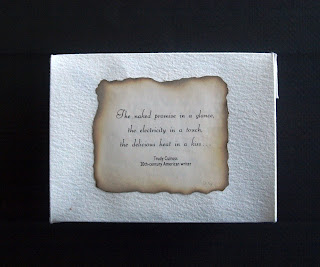 The naked promise in a glance,
the electricity in a touch,
the delicious heat in a kiss...
Trudy Culross
20th-century American writer